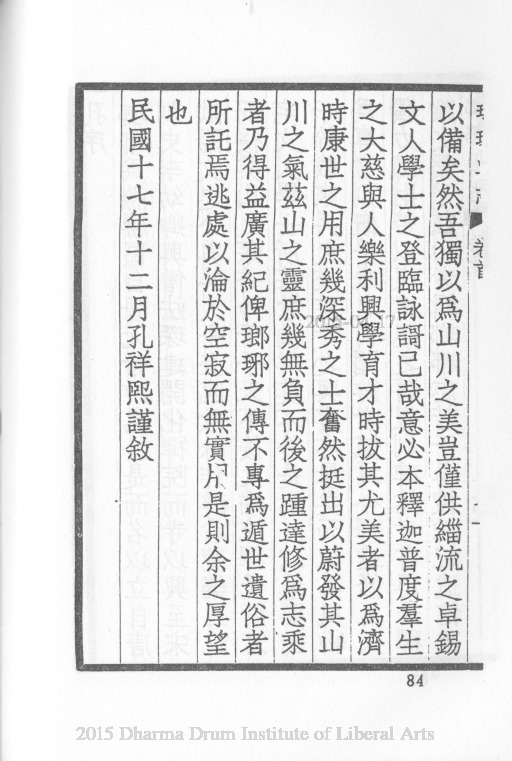 以備矣然吾獨以爲山川之美豈僅供緇流之卓錫
文人學士之登臨詠謌已哉意必本釋迦普度羣生
之大慈與人樂利興學育才時拔其尤美者以爲濟
時康世之用庶幾深秀之士奮然挺出以蔚發其山
川之氣茲山之靈庶幾無負而後之踵達修爲志乘
者乃得益廣其紀俾瑯琊之傳不專爲遁世遺俗者
所託焉逃處以淪於空寂而無實
是則余之厚望
也
民國十七年十二月孔祥熙謹敘
卷首
84
2015 Dharma Drum Institute of Liberal Arts